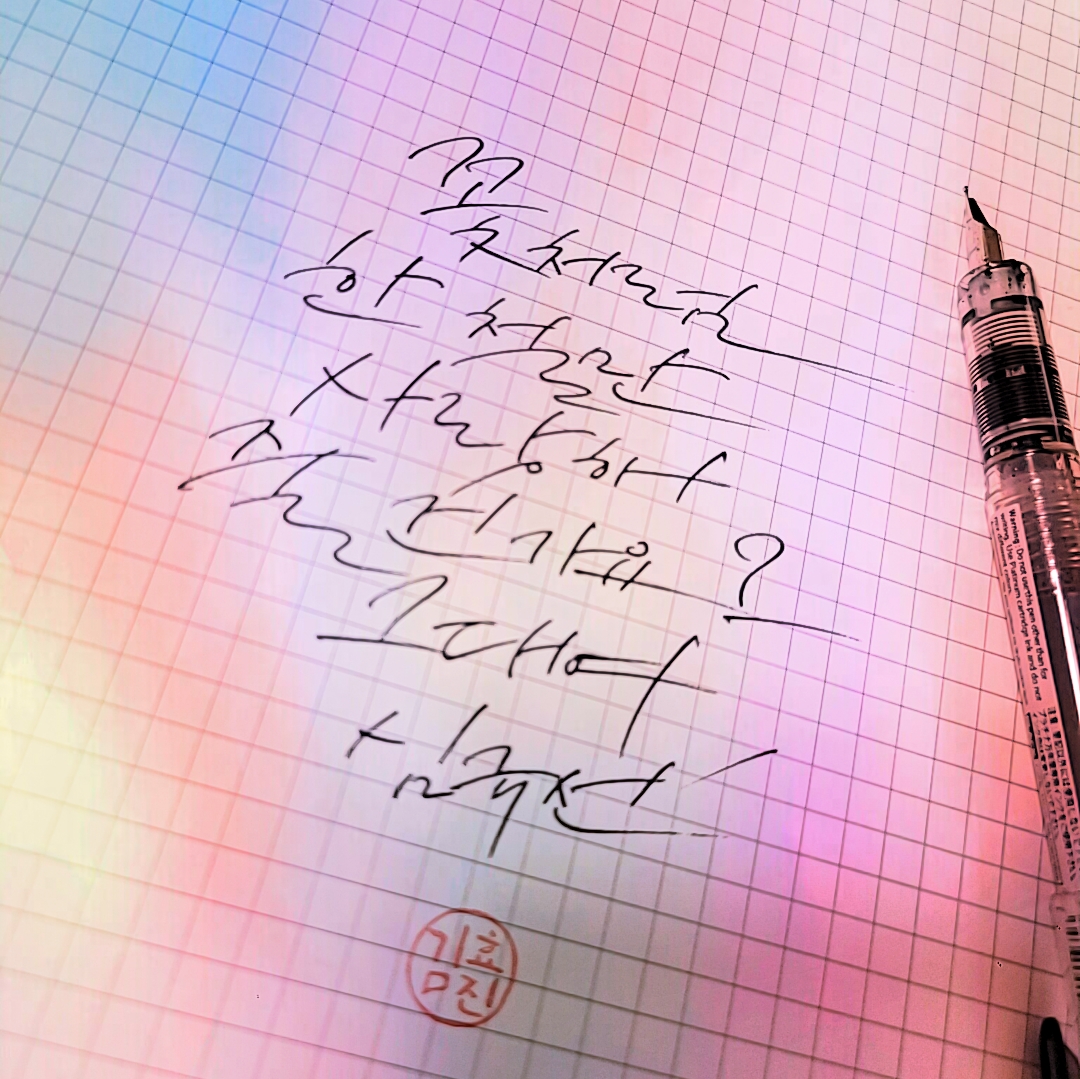 꽃처럼
한 철만
사랑해
줄 건가요?
그대여
심규선
김효진
Warning : Do not use this pen other than for
writing. Use Platinum cartridge ink and do not